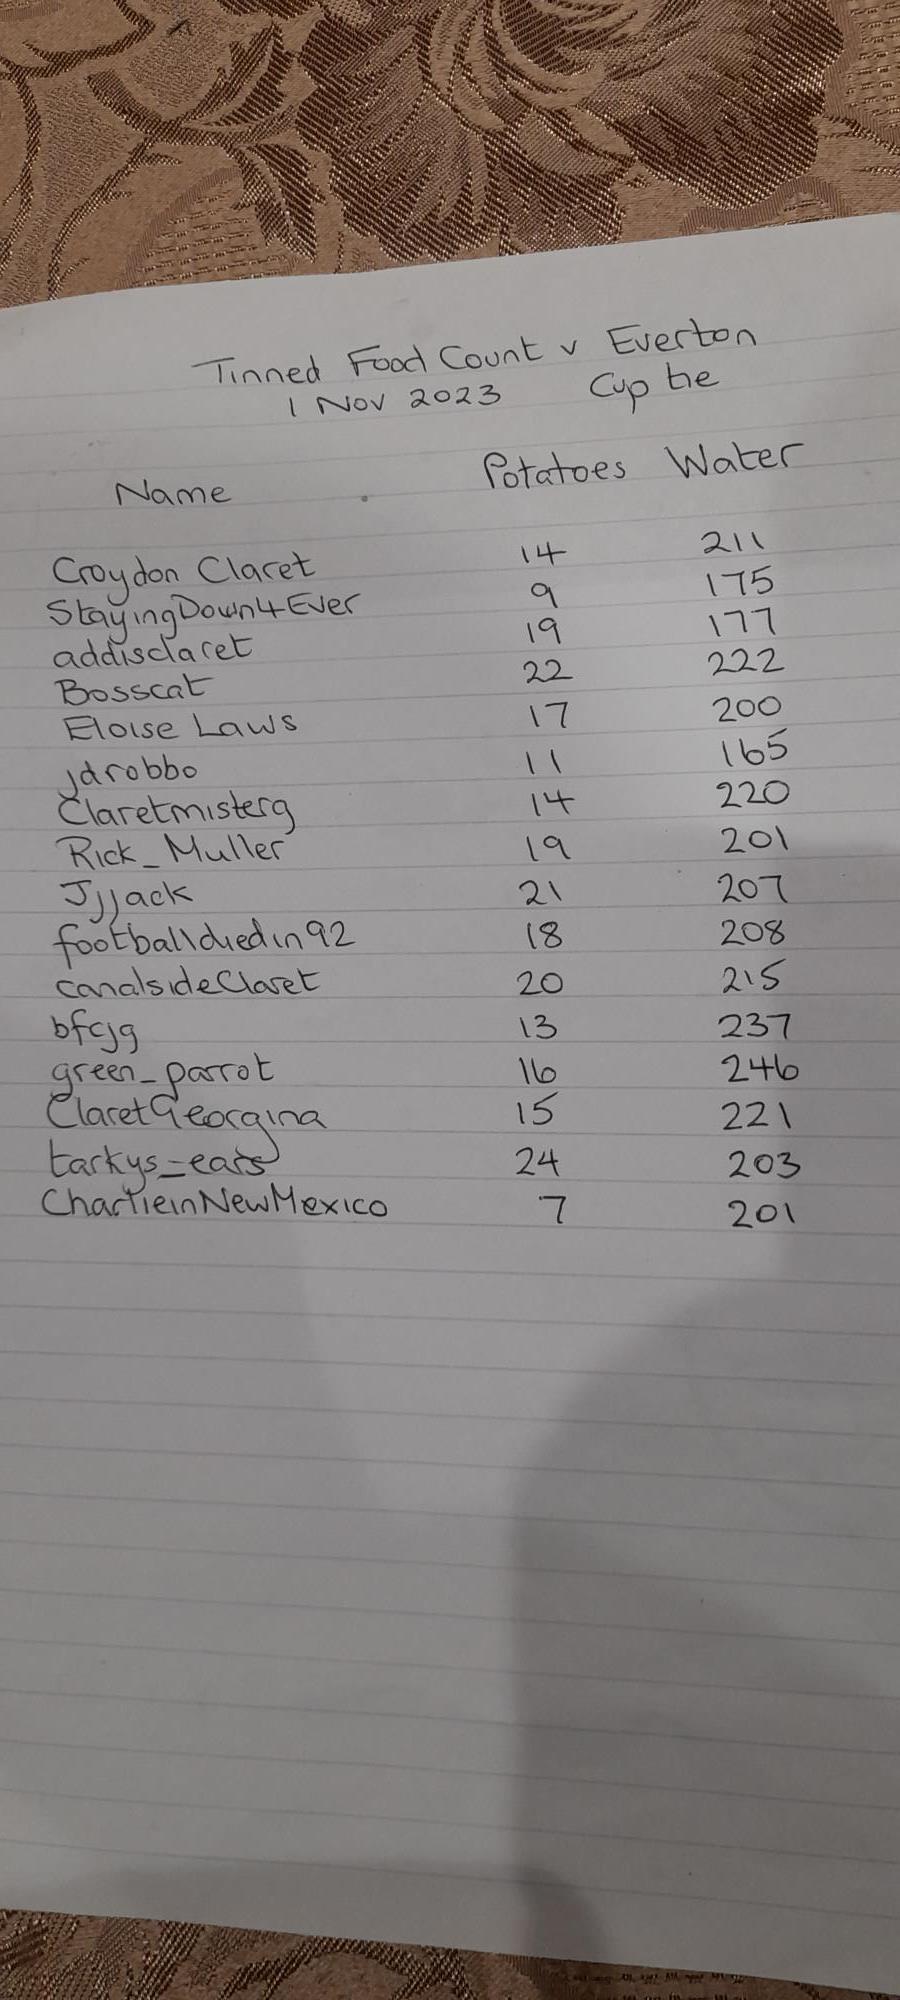 Tinned Food Count v Everton
1 Nov 2023 Cup tie
Name Potatoes Water
Croydon Claret 14 211
StayingDown4Ever 9 175
addisclaret 19 177
Bosscat 22 222
Eloise Laws 17 200
jdrobbo 11 165
Claretmisterg 14 220
Rick_Muller 19 201
Jjjack 21 207
footballdiedin92 18 208
canalsideClaret 20 215
bfcjg 13 237
green_parrot 16 246
ClaretGeorgina 15 221
tarkys_ears 24 203
CharlieinNewMexico 7 201